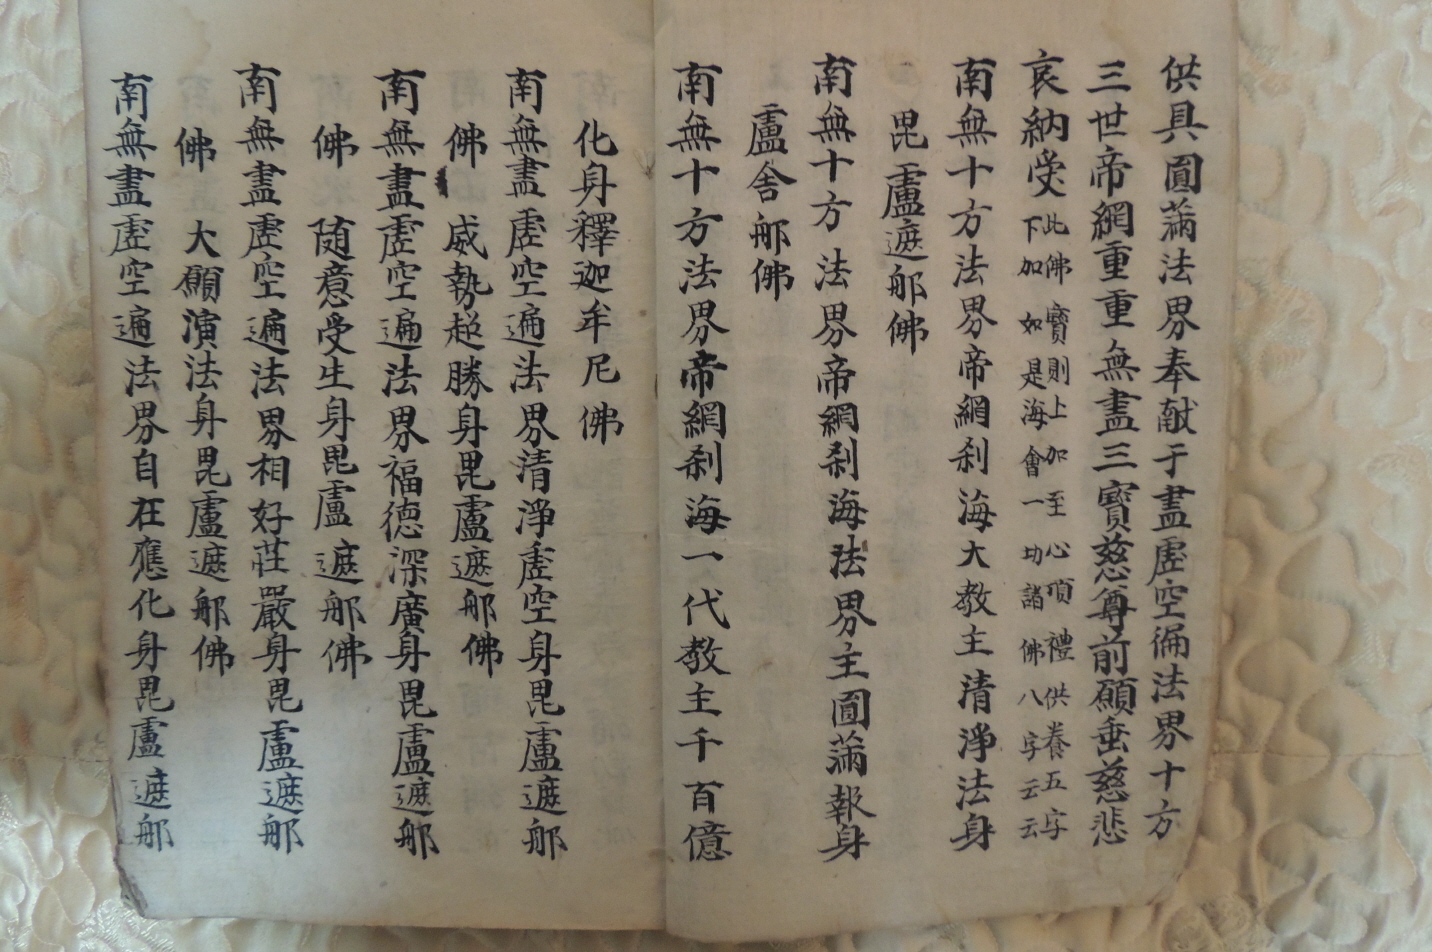 供具圓滿法界奉献于盡虛空徧法界十方
三世帝網重重無盡三寶慈尊前願垂慈悲
哀納受
此佛寶則上加至心頂禮供養五字
下加如是海會一切諸佛八字云云
南無十方法界帝網刹海大教主清淨法身
毘盧遮那佛
南無十方法界帝網刹海法界主圓滿報身
盧舍那佛
南無十方法界帝網刹海一代教主千百億
化身釋迦牟尼佛
南無盡虛空遍法界清淨虛空身毘盧遮那
佛 威勢超勝身毘盧遮那佛
南無盡虛空遍法界福德深廣身毘盧遮那
佛 随意受生身毘盧遮那佛
南無盡虛空遍法界相好莊嚴身毘盧遮那
佛 大願演法身毘盧遮那佛
南無盡虛空遍法界自在應化身毘盧遮那